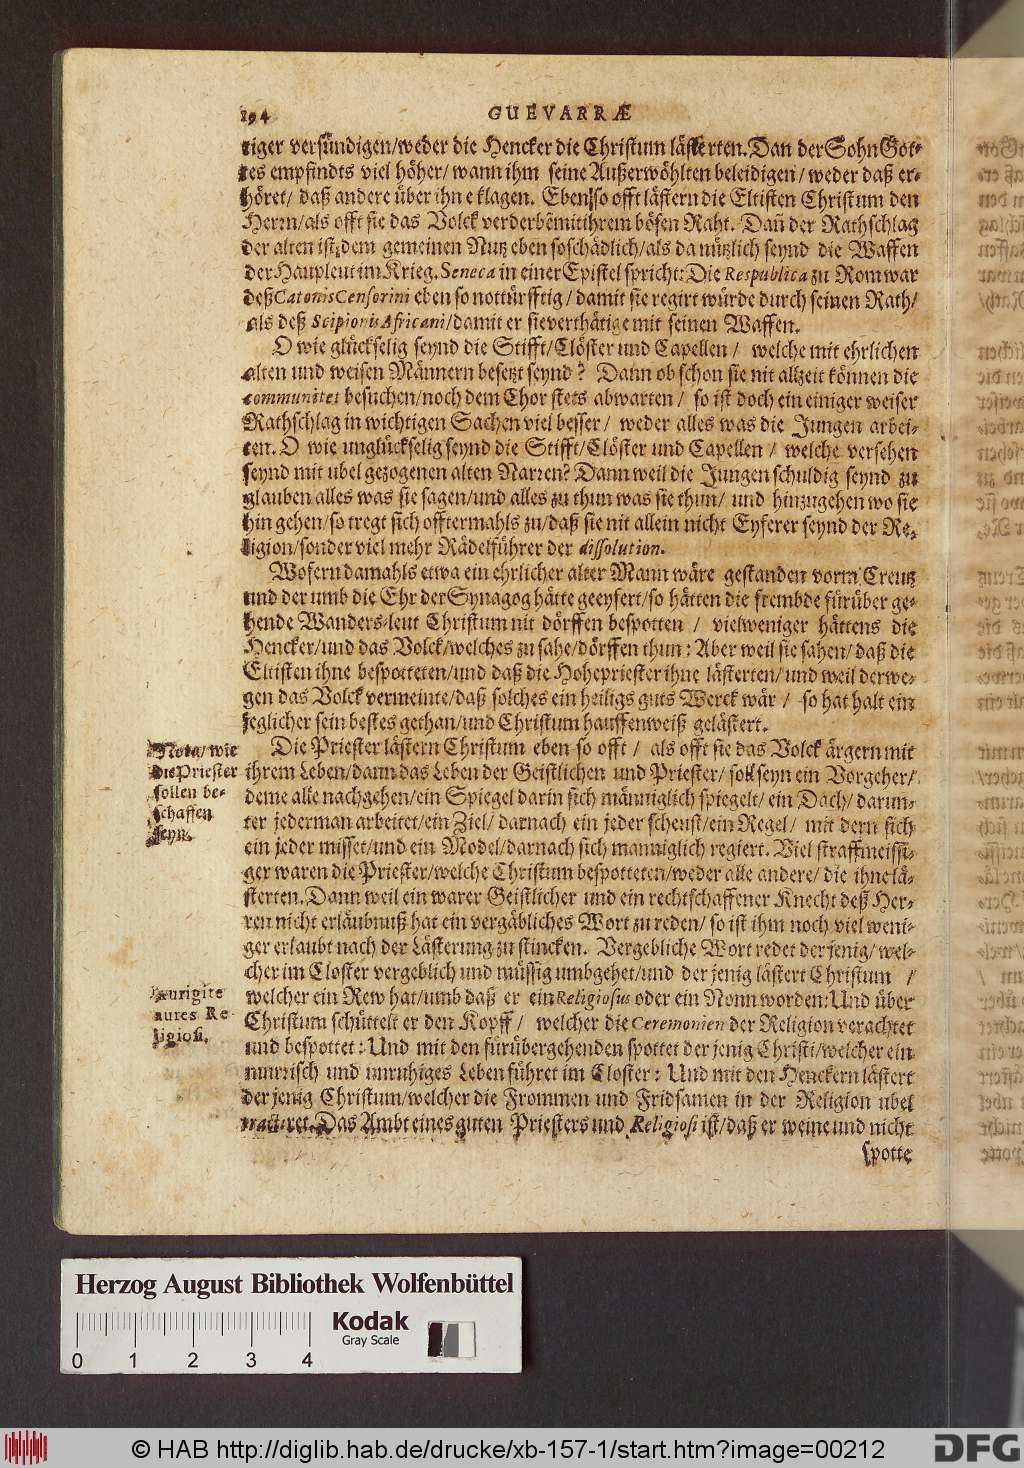 194
GUEVARRÆ
tiger versündigen/weder die Hencker die Christum lästerten. Dan der Sohn Got-
tes empfindts viel höher/wann ihm seine Außerwöhlten beleidigen/weder daß er-
höret/ daß andere über ihne klagen. Eben so offt lästern die Eltisten Christum den
Herrn/als offt sie das Volck verderbē mit ihrem bösen Raht. Dañ der Rathschlag
der alten ist dem gemeinen Nutz eben so schädlich/als da nützlich seynd die Waffen
der Haupleut im Krieg. Seneca in einer Epistel spricht: Die Respublica zu Rom war
deß Catonis Censorini eben so nottürfftig/damit sie regirt würde durch seinen Rath/
als deß Scipionis Africani/damit er sie verthätige mit seinen Waffen.
O wie glückselig seynd die Stifft/Clöster und Capellen/ welche mit ehrlichen
alten und weisen Männern besetzt seynd? Dann ob schon sie nit allzeit können die
communitet besuchen/noch dem Chor stets abwarten/ so ist doch ein einiger weiser
Rathschlag in wichtigen Sachen viel besser/ weder alles was die Jungen arbei-
ten. O wie unglückselig seynd die Stifft/Clöster und Capellen/ welche versehen
seynd mit ubel gezogenen alten Narren? Dann weil die Jungen schuldig seynd zu
glauben alles was sie sagen/und alles zu thun was sie thun/ und hinzugehen wo sie
hin gehen/so tregt sich offtermahls zu/daß sie nit allein nicht Eyferer seynd der Re-
ligion/sonder viel mehr Rädelführer der dissolution.
Wofern damahls etwa ein ehrlicher alter Mann wäre gestanden vorm Creutz
und der umb die Ehr der Synagog hätte geeyfert/so hätten die frembde fürüber ge-
hende Wanders-leut Christum nit dörffen bespotten/ vielweniger hättens die
Hencker/und das Volck/welches zu sahe/dörffen thun: Aber weil sie sahen/daß die
Eltisten ihne bespotteten/und daß die Hohepriester ihne lästerten/und weil derwe-
gen das Volck vermeinte/daß solches ein heiligs guts Werck wär/ so hat halt ein
jeglicher sein bestes gethan/und Christum hauffenweiß gelästert.
Nota/wie
die Priester
sollen be-
schaffen
seyn.
Die Priester lästern Christum eben so offt/ als offt sie das Volck ärgern mit
ihrem Leben/dann das Leben der Geistlichen und Priester/ soll seyn ein Vorgeher/
deme alle nachgehen/ein Spiegel darin sich männiglich spiegelt/ein Dach/darun-
ter jederman arbeitet/ein Ziel/darnach ein jeder scheust/ein Regel/ mit dern sich
ein jeder misset/und ein Model/darnach sich manniglich regiert. Viel straffmeissi-
ger waren die Priester/welche Christum bespotteten/weder alle andere/ die ihne lä-
sterten. Dann weil ein warer Geistlicher und ein rechtschaffener Knecht deß Her-
ren nicht erläubnuß hat ein vergäbliches Wort zu reden/ so ist ihm noch viel weni-
ger erlaubt nach der Lästerung zu stincken. Vergebliche Wort redet der jenig/wel-
cher im Closter vergeblich und müssig umbgehet/und der jenig lästert Christum /
aures Re-
ligiosi.
welcher ein Rew hat/umb daß er ein Religiosus oder ein Nonn worden: Und über
Christum schüttelt er den Kopff/ welcher die Ceremonien der Religion verachtet
und bespottet: Und mit den fürübergehenden spottet der jenig Christi/welcher ein
murrisch und unruhiges Leben führet im Closter: Und mit den Henckern lästert
der jenig Christum/welcher die Frommen und Fridsamen in der Religion ubel
tractiret. Das Ambt eines guten Priesters und Religiosi ist/daß er weine und nicht
spotte
Herzog August Bibliothek Wolfenbüttel
Kodak
Gray Scale
0 1 2 3 4
© HAB http://diglib.hab.de/drucke/xb-157-1/start.htm?image=00212
DFG